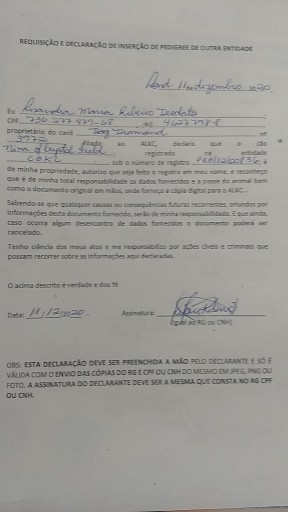 REQUISIÇÃO E DECLARAÇÃO DE INSERÇÃO DE PEDIGREE DE OUTRA ENTIDADE
11 de dezembro 2020
Eu Lisandra Maria Ribeiro Deodato
CPF: RG
proprietário do canil Dog Diamond nº
3772 filiado ao ALKC, declaro que o cão
registrado na entidade
sob o número de registro é
de minha propriedade, autorizo que seja feito o registro em meu nome, e reconheço
que é de minha total responsabilidade os dados fornecidos e a posse do animal bem
como o documento original em mãos, onde forneço a cópia digital para o ALKC...
Sabendo-se que quaisquer causas ou consequências futuras recorrentes, oriundos por
informações desta documento fornecido, serão de minha responsabilidade. E que ainda,
caso ocorra algum desencontro de dados fornecidos o documento poderá ser
cancelado.
Tenho ciência dos meus atos e me responsabilizo por ações cíveis e criminais que
possam recorrer sobre as informações aqui declaradas.
O acima descrito é verdade e dou fé
Data: 11/12/2020. Assinatura:
(Igual ao RG ou CNH)
OBS: ESTA DECLARAÇÃO DEVE SER PREENCHIDA A MÃO PELO DECLARANTE E SÓ É
VÁLIDA COM O ENVIO DAS CÓPIAS DO RG E CPF OU CNH DO MESMO EM JPEG, PNG OU
FOTO. A ASSINATURA DO DECLARANTE DEVE SER A MESMA QUE CONSTA NO RG CPF
OU CNH.